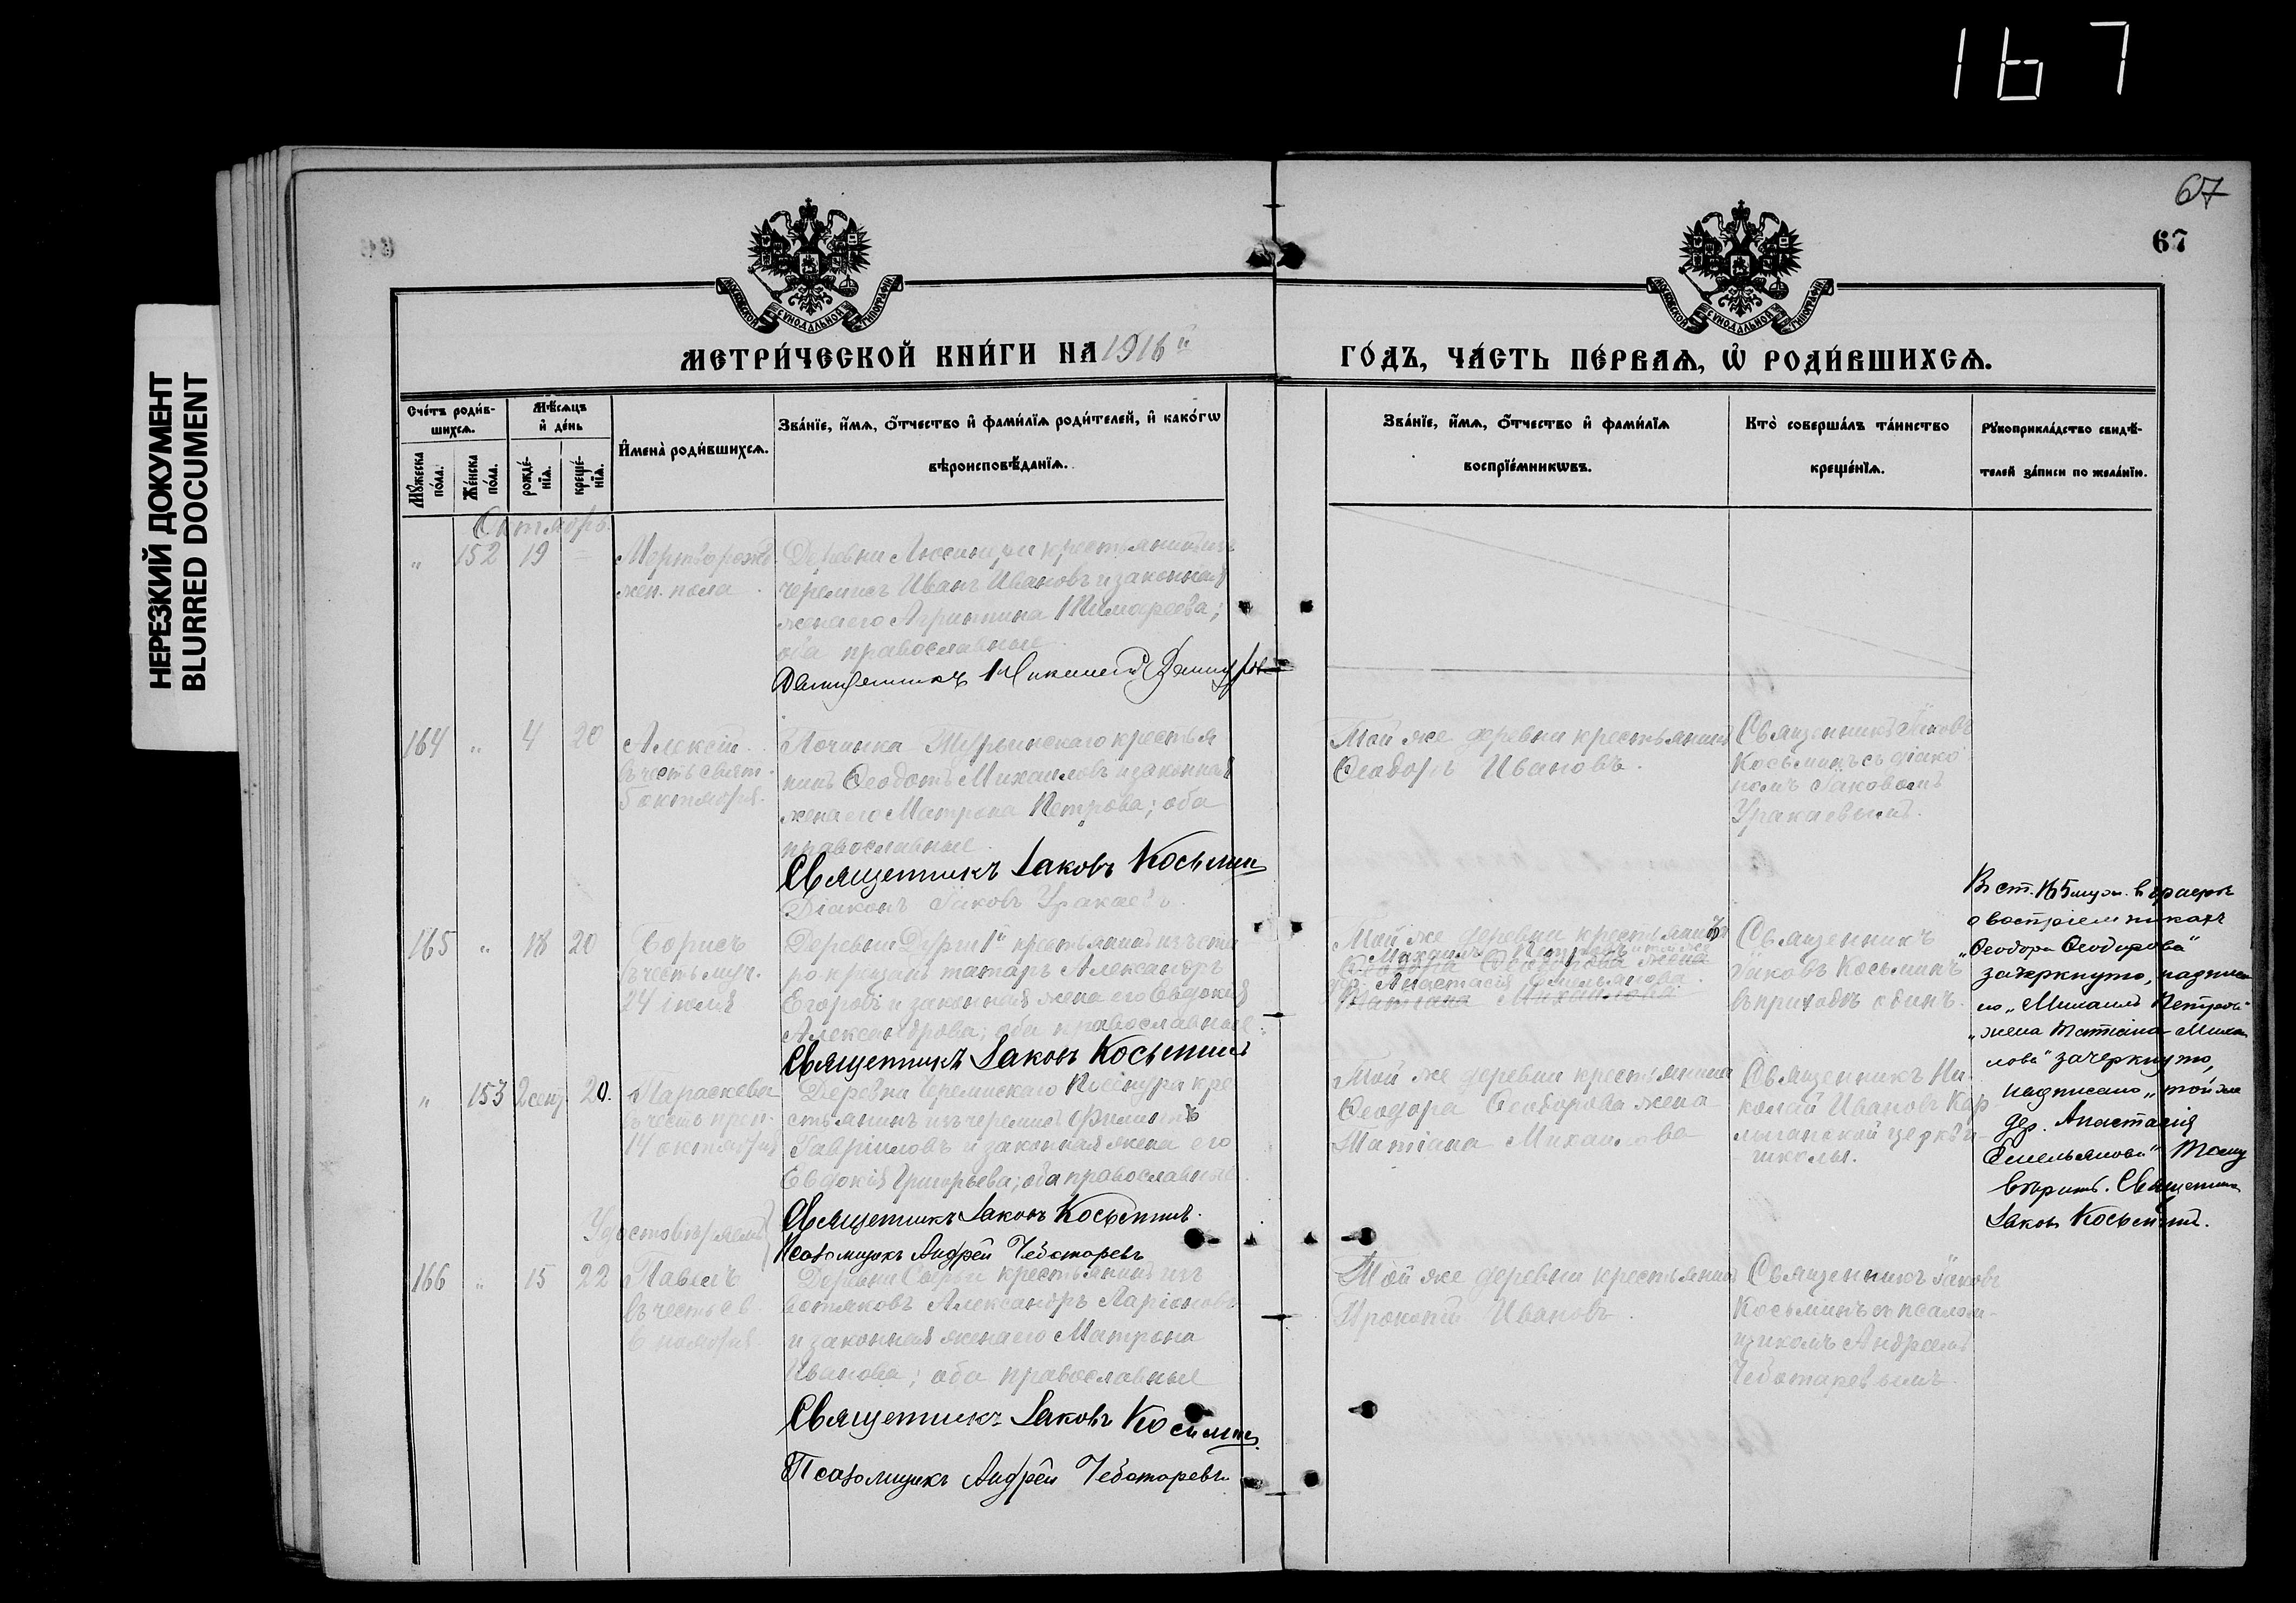 167
НЕРЕЗКИЙ ДОКУМЕНТ
BLURRED DOCUMENT
67
67
МЕТРИ́ЧЕСКОЙ КНИ́ГИ НА 1916й
ГО́ДЪ, ЧА́СТЬ ПЕ́РВАѦ, Ѿ РОДИ́ВШИХСѦ.
Сче́тъ роди́в-
шихсѧ.
Мѣ́сѧцъ
и҆ де́нь
Мꙋ́жеска
по́ла.
Же́нска
по́ла.
рожде́-
нїѧ.
креще́-
нїѧ.
И҆мена̀ роди́вшихсѧ.
Зва́нїе, и҆́мѧ, ѻ҆́тчество и҆ фамѝлїѧ роди́телей, и҆ како́гѡ
вѣроисповѣ́данїѧ.
Зва́нїе, и҆́мѧ, ѻ҆́тчество и҆ фамѝлїѧ
воспрїе́мникѡвъ.
Кто̀ соверша́лъ та́инство
креще́нїѧ.
Рꙋкоприкла́дство свидѣ́-
телей за́писи по жела́нїю.
Октябрь.
" 152 19 =
Мертворожд.
жен. пола.
Деревни крестьянинъ изъ
черемисъ Иванъ Ивановъ и законная
жена его Агрипина
оба православные.
Священникъ
164 " 4 20
Алексій.
въ честь свят.
5 октября.
Починка крестья
нинъ Ѳеодотъ Михаиловъ и законная
жена его Матрона Петрова; оба
православные.
Священникъ Іаковъ Косьмин
Діаконъ Іаковъ Уракаевъ.
Той же деревни крестьянинъ
Ѳеодоръ Ивановъ.
Священникъ Іаковъ
Косьминъ съ діако
номъ Іаковомъ
Уракаевымъ.
165 " 18 20
Борисъ
въ честь муч.
24 іюля
Деревни крестьянинъ изъ ста
ро крещенъ татаръ Александръ
Егоровъ и законная жена его Евдокія
Александрова; оба православные.
Священникъ Іаковъ Косьминъ
Той же деревни крестьянинъ
Михаилъ Петровъ и той же
Ѳеодора Ѳеодорова жена
дер. Анастасія Емельянова.
Татіана Михаилова
Священникъ
Іаковъ Косьминъ
въ приходѣ одинъ.
Въ ст. 165 муж. въ графѣ
о воспріемникахъ
„Ѳеодора Ѳеодорова"
зачеркнуто, надписа
но „Михаилъ Петровъ"
„жена Татіана Михаи
лова" зачеркнуто,
надписано „той же
дер. Анастасія
Емельянова" Тому
вѣрить. Священникъ
Іаковъ Косьминъ.
" 153 2 сент. 20.
Параскева
въ честь преп.
14 октября
Деревни Черемискаго кре
стьянинъ изъ черемисъ Филиппъ
Гавріиловъ и законная жена его
Евдокія Григорьева; оба православные.
Удостовѣряемъ
Священникъ Іаковъ Косьминъ.
Псаломщикъ Андрей Чеботаревъ
Той же деревни крестьянина
Ѳеодора Ѳеодорова жена
Татіана Михаилова
Священникъ Ни
колай Ивановъ
церкви-
школы.
166 " 15 22
Павелъ
въ честь св.
6 ноября.
Деревни крестьянинъ изъ
вотяковъ Александръ Ларіоновъ
и законная жена его Матрона
Иванова; оба православные
Священникъ Іаковъ Косьмин
Псаломщикъ Андрей Чеботаревъ.
Той же деревни крестьянинъ
Прокопій Ивановъ.
Священникъ Іаковъ
Косьминъ съ псалом-
щикомъ Андреемъ
Чеботаревымъ.